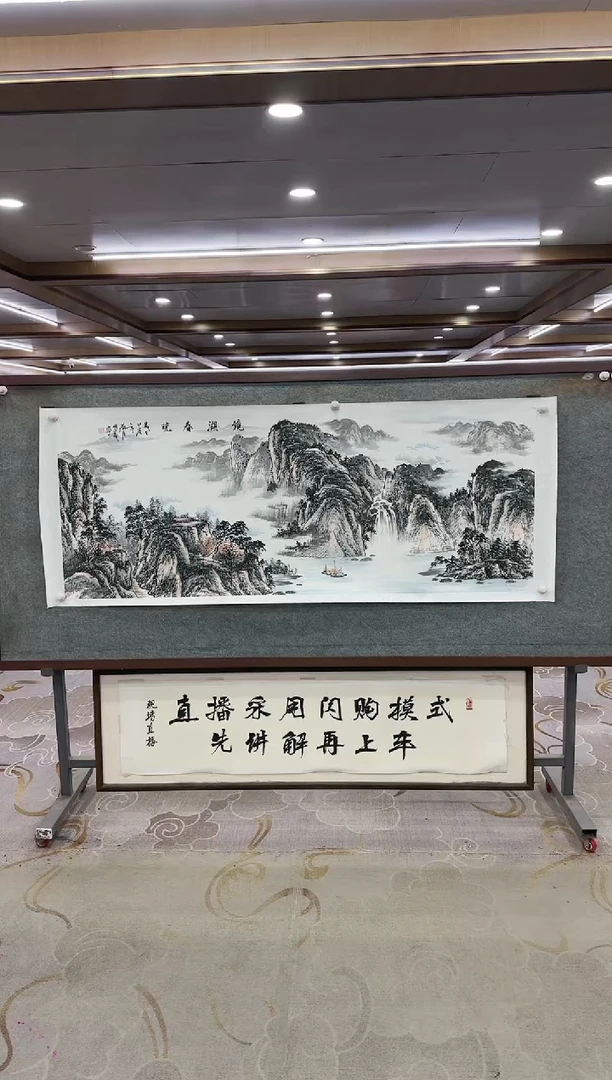 镜湖春晓
直播采用闪购模式
先讲解再上车
现场直播